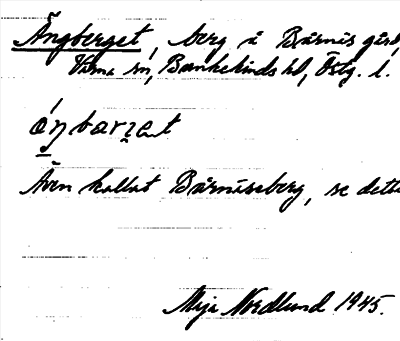 Ängberget, berg å Bårnäs gård,
Värna sn, Bankekinds hd, Östg. l.
áŋbarɛt
Även kallat Bårnäseberg, se detta
Maja Nordlund 1945.